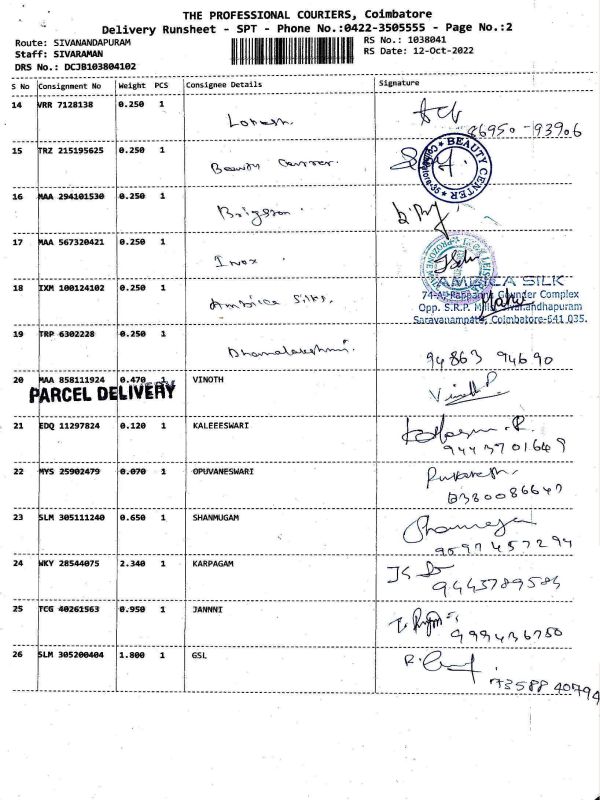 THE PROFESSIONAL COURIERS, Coimbatore
Delivery Runsheet - SPT - Phone No.:0422-3505555 - Page No.:2
Route: SIVANANDAPURAM
RS No.: 1038041
Staff: SIVARAMAN
RS Date: 12-Oct-2022
DRS No.: DCJB103804102
S No Consignment No Weight PCS Consignee Details Signature
14 VRR 7128138 0.250 1 Lokesh.
86950-93906
15 TRZ 215195625 0.250 1 Beauty Center.
BEAUTY CENTER
16 MAA 294101530 0.250 1
17 MAA 567320421 0.250 1 Inox
18 IXM 100124102 0.250 1 Ambica Silks.
AMBICA SILK
74-A, Rappanna Gounder Complex
Opp. S.R.P. Mills, Sivanandhapuram
Saravanampatti, Coimbatore-641 035.
19 TRP 6302228 0.250 1 Dhanalakshmi.
94863 94690
20 MAA 858111924 0.470 1 VINOTH Vinoth.P
PARCEL DELIVERY
21 EDQ 11297824 0.120 1 KALEEESWARI
9443701649
22 MYS 25902479 0.070 1 OPUVANESWARI
6380086647
23 SLM 305111240 0.650 1 SHANMUGAM
9597457294
24 WKY 28544075 2.340 1 KARPAGAM
9443789584
25 TCG 40261563 0.950 1 JANNNI
26 SLM 305200404 1.800 1 GSL
73588 40794